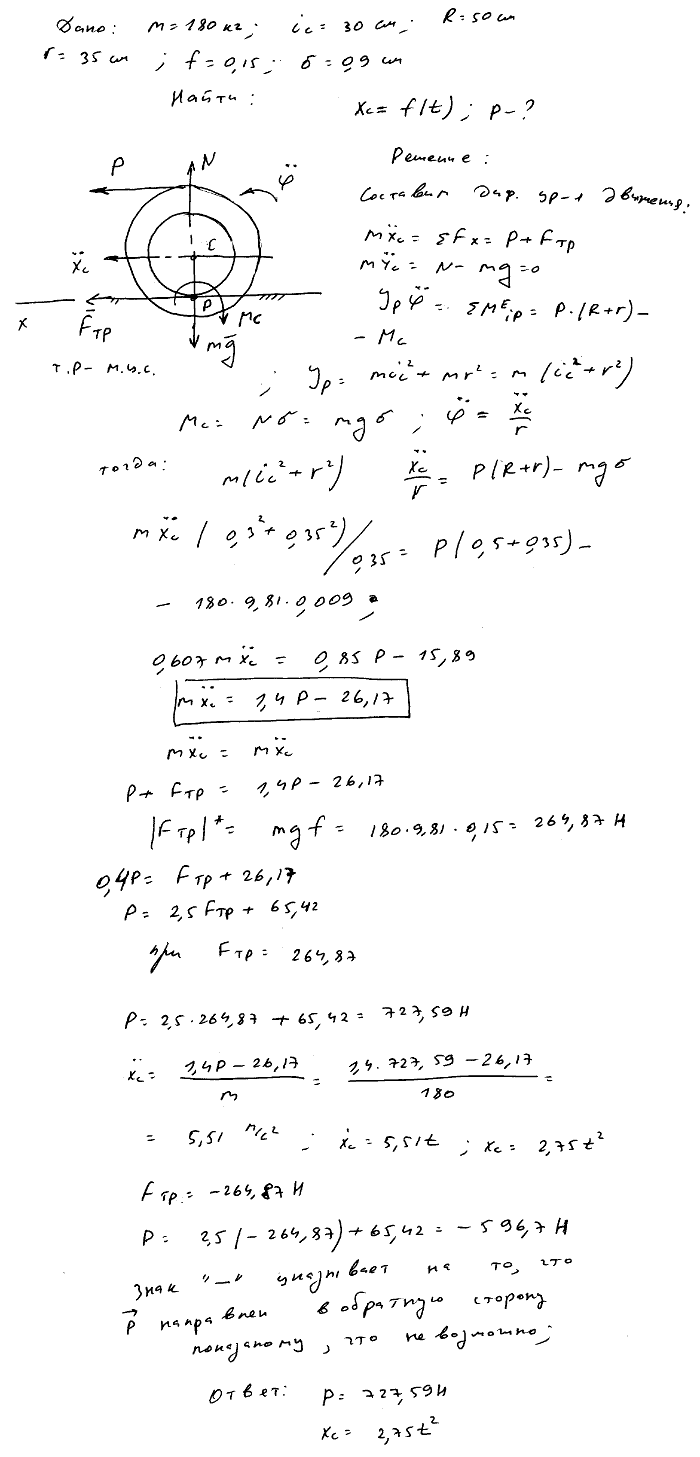 Дано: m = 180 кг; ic = 30 см; R = 50 см
r = 35 см; f = 0,15; δ = 0,9 см
Найти: xc = f(t); P - ?
Решение:
Составим диф. ур-я движения:
mẍc = ΣFx = P + Fтр
mÿc = N - mg = 0
Jp φ̈ = ΣM^E_ip = P·(R+r) -
- Mc
P
N
φ̈
C
ẍc
P
x
F̄тр
Mc
mḡ
т.P - м.ц.с.
; Jp = mic² + mr² = m(ic² + r²)
Mc = Nδ = mgδ; φ̈ = ẍc/r
тогда: m(ic² + r²) ẍc/r = P(R+r) - mgδ
mẍc (0,3² + 0,35²)/0,35 = P(0,5 + 0,35) -
- 180·9,81·0,009;
0,607 mẍc = 0,85 P - 15,89
mẍc = 1,4 P - 26,17
mẍc = mẍc
P + Fтр = 1,4P - 26,17
|Fтр|* = mgf = 180·9,81·0,15 = 264,87 Н
0,4P = Fтр + 26,17
P = 2,5 Fтр + 65,42
при Fтр = 264,87
P = 2,5·264,87 + 65,42 = 727,59 Н
ẍc = (1,4P - 26,17)/m = (1,4·727,59 - 26,17)/180 =
= 5,51 м/с²; ẋc = 5,51t; xc = 2,75t²
Fтр = -264,87 Н
P = 2,5(-264,87) + 65,42 = -596,7 Н
Знак "-" указывает на то, что
P⃗ направлен в обратную сторону
показаному, что не возможно;
Ответ: P = 727,59Н
xc = 2,75t²